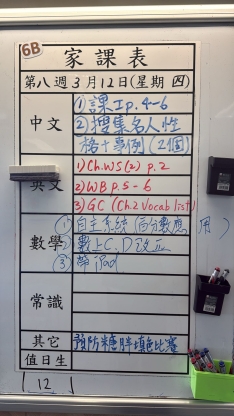 6B
家課表
第八週3月12日(星期 四)
中文
①課工p.4-6
②搜集名人性
格+事例(2個)
英文
1)Ch.WS(2) p.2
2)WB p.5-6
3)GC (Ch.2 Vocab list)
數學
①自主系統(百分數應用)
②數上C.D改正
③帶iPad
常識
其它
預防糖胖填色比賽
值日生
12